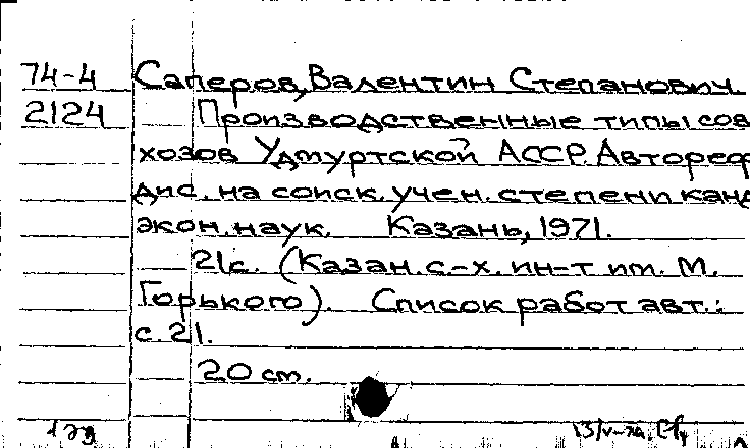 74-4 Саперов, Валентин Степанович.
2124 Производственные типы сов
хозов Удмуртской АССР. Автореф
дис. на соиск. учен. степени канд
экон. наук. Казань, 1971.
21с. (Казан. с.-х. ин-т им. М.
Горького). Список работ авт.:
с. 21.
20 см.